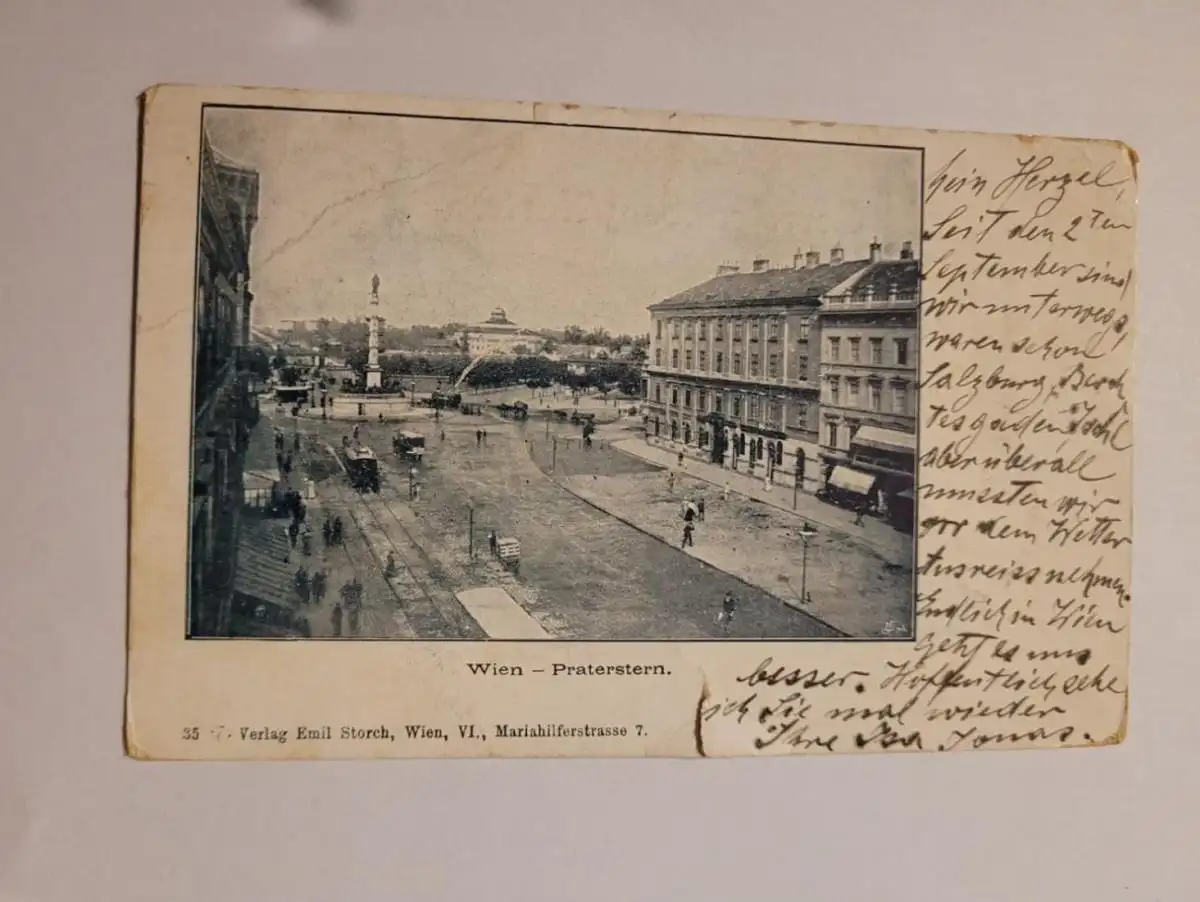 Wien – Praterstern.
35 Verlag Emil Storch, Wien, VI., Mariahilferstrasse 7.
Mein Herzel,
Seit den 2ten
September sind
wir unterwegs,
waren schon
Salzburg, Berch
tesgaden Ischl
aber überall
mussten wir
vor dem Wetter
Ausreissnehmen.
Endlich in Wien
geht es uns
besser. Hoffentlich sehe
ich Sie mal wieder
Ihre Isa Jonas.